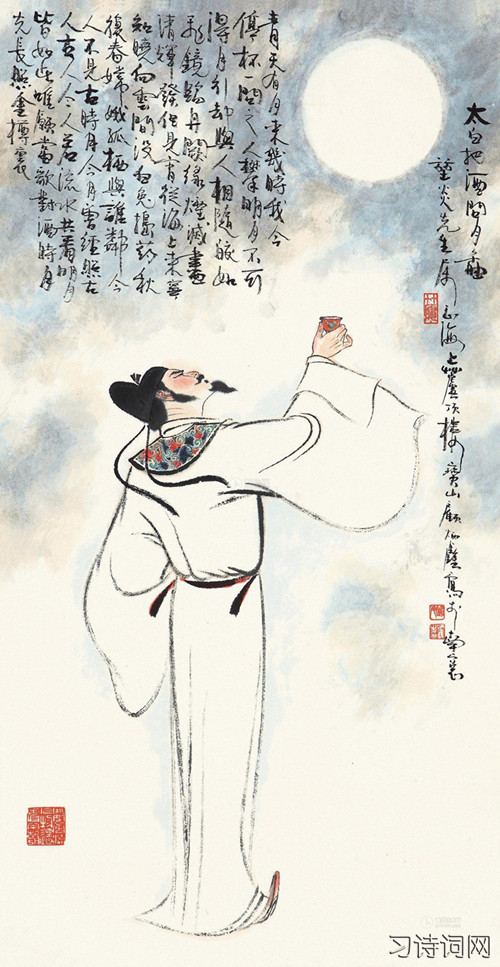 太白把酒問月畫
炎先生屬正海上樓寶山顧炳鑫寫於南窗
青天有月來幾時我今
停杯一問之人攀明月不可
得月行却與人相隨皎如
飛鏡臨丹闕綠煙滅盡
清輝發但見宵從海上來寧
知曉向雲間沒白兔搗藥秋
復春嫦娥孤栖與誰鄰今
人不見古時月今月曾經照古
人古人今人若流水共看明月
皆如此唯願當歌對酒時月
光長照金樽裏
习诗词网